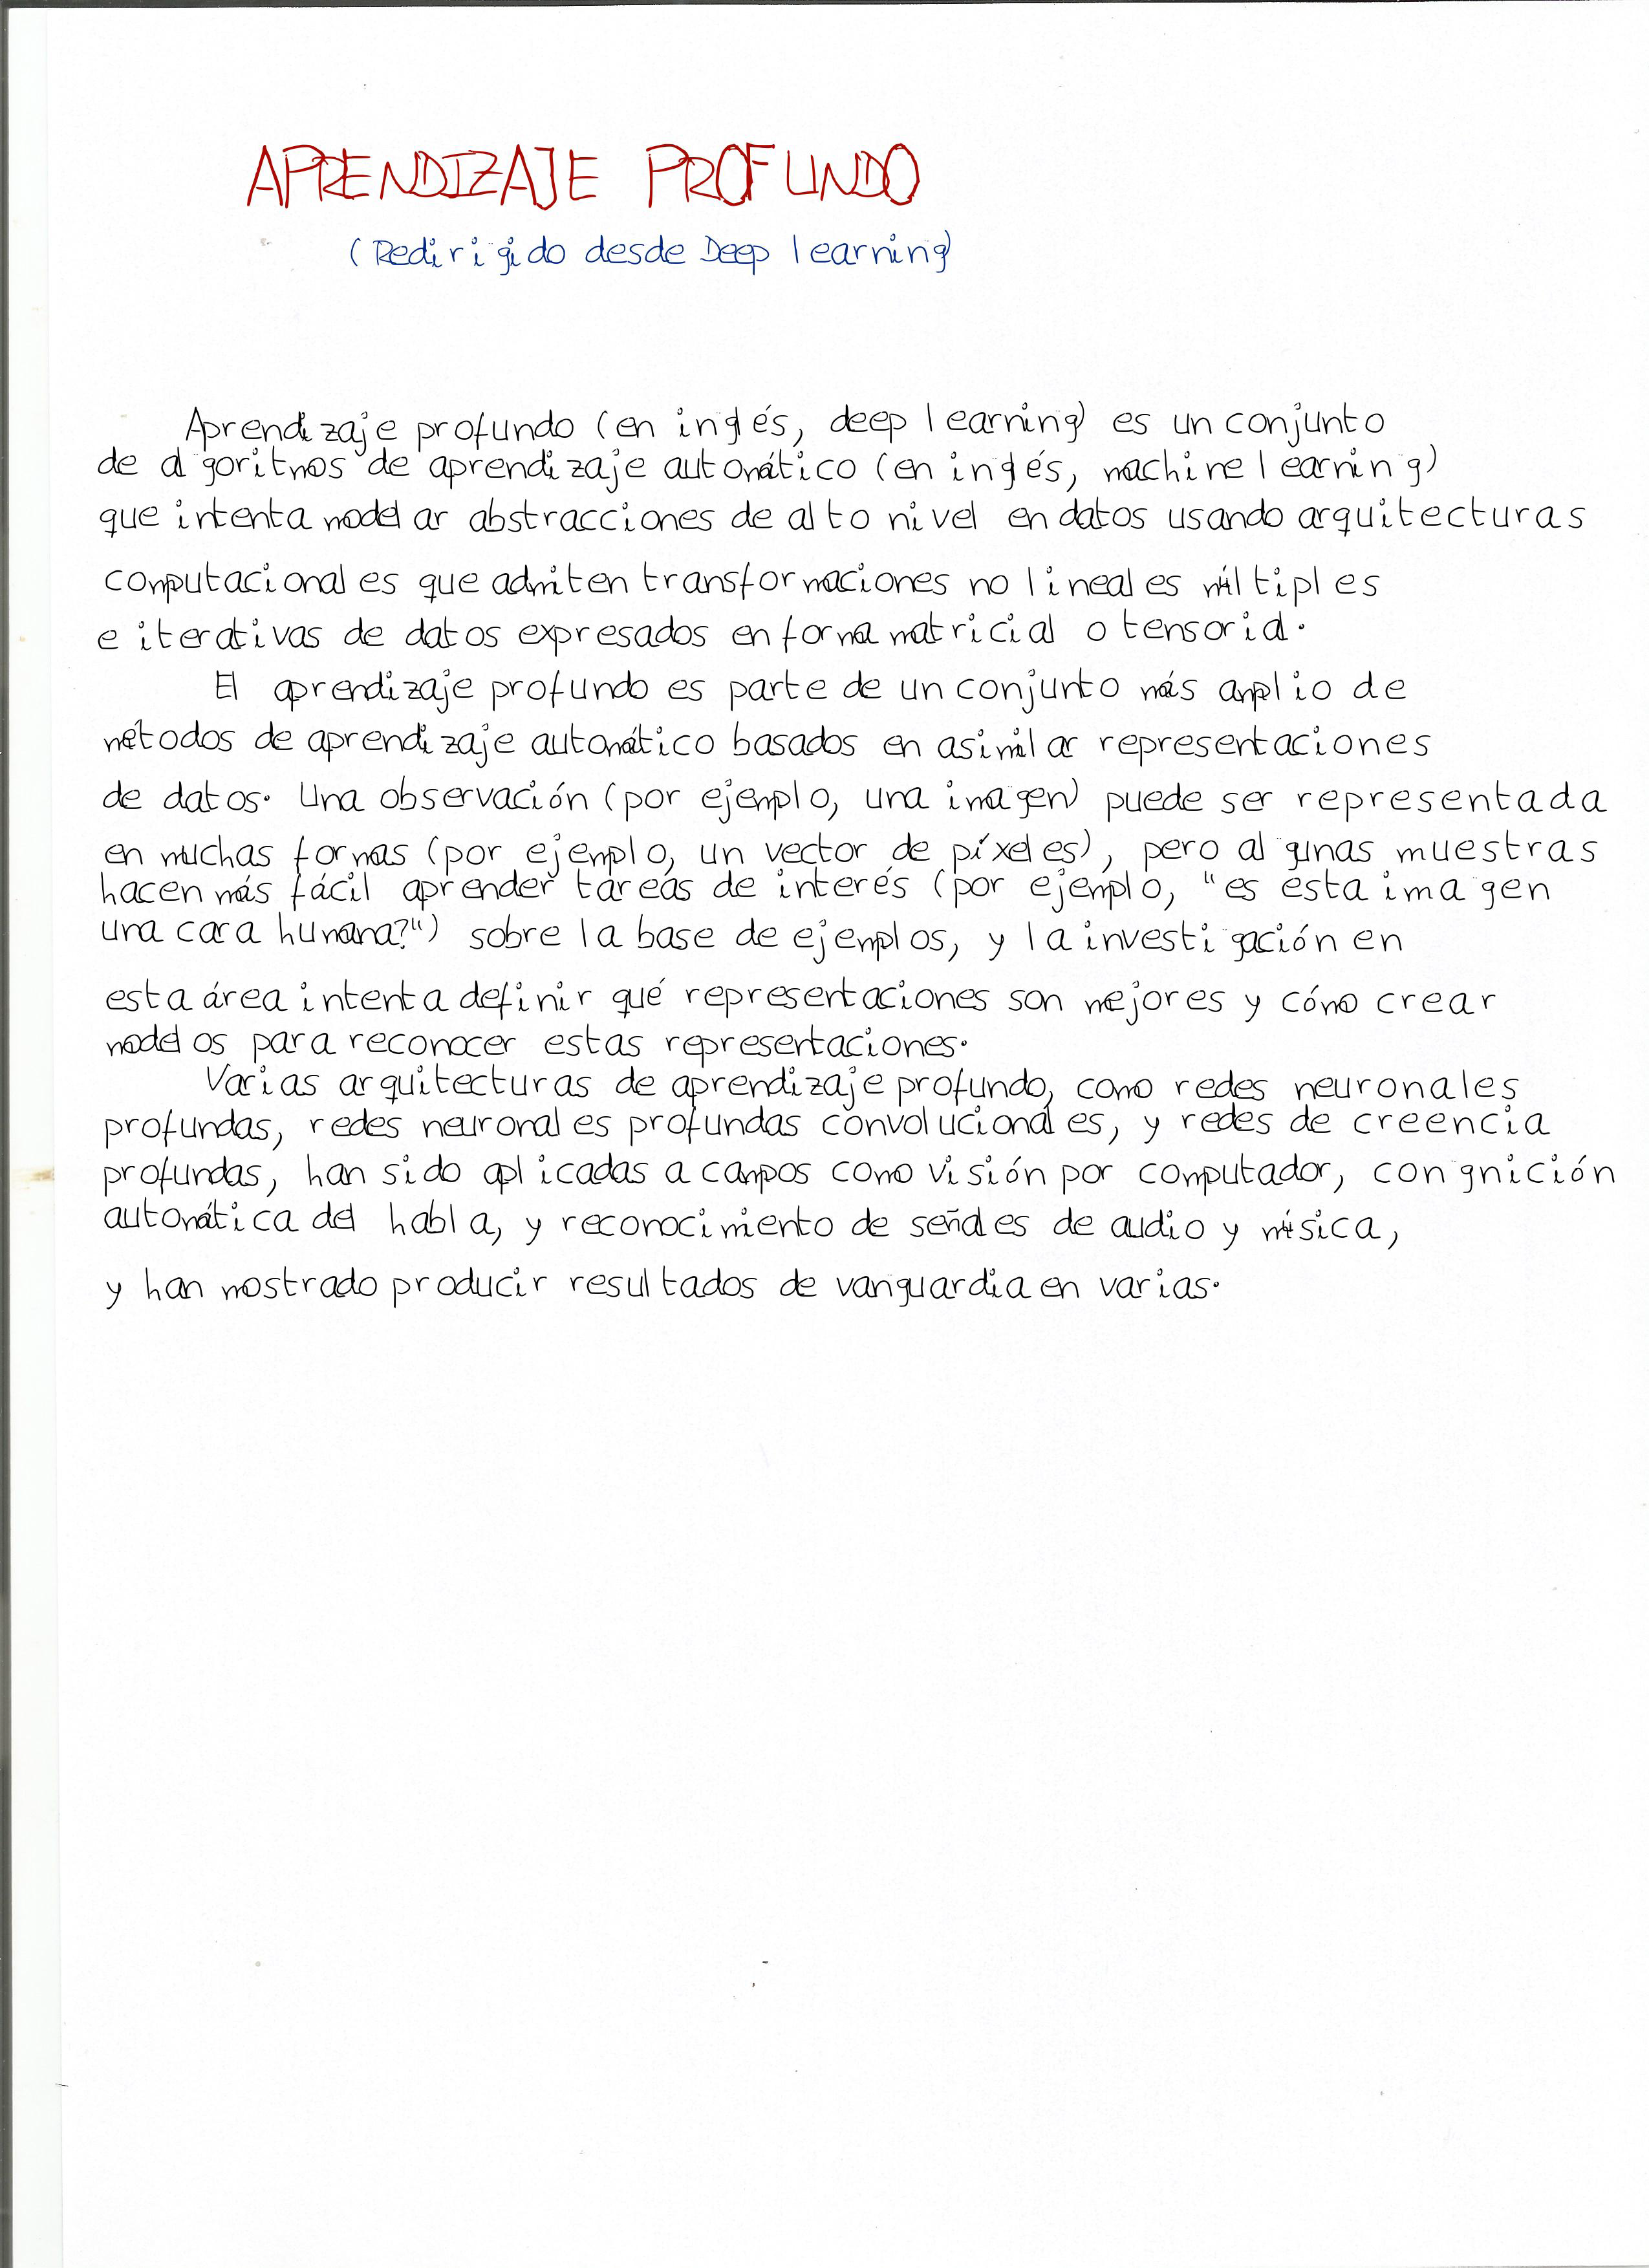 APRENDIZAJE PROFUNDO
(Redirigido desde Deep learning)
Aprendizaje profundo (en inglés, deep learning) es un conjunto
de algoritmos de aprendizaje automático (en inglés, machine learning)
que intenta modelar abstracciones de alto nivel en datos usando arquitecturas
computacionales que admiten transformaciones no lineales múltiples
e iterativas de datos expresados en forma matricial o tensorial.
El aprendizaje profundo es parte de un conjunto más amplio de
métodos de aprendizaje automático basados en asimilar representaciones
de datos. Una observación (por ejemplo, una imagen) puede ser representada
en muchas formas (por ejemplo, un vector de píxeles), pero algunas muestras
hacen más fácil aprender tareas de interés (por ejemplo, "es esta imagen
una cara humana?") sobre la base de ejemplos, y la investigación en
esta área intenta definir qué representaciones son mejores y cómo crear
modelos para reconocer estas representaciones.
Varias arquitecturas de aprendizaje profundo, como redes neuronales
profundas, redes neuronales profundas convolucionales, y redes de creencia
profundas, han sido aplicadas a campos como visión por computador, congnición
automática del habla, y reconocimiento de señales de audio y música,
y han mostrado producir resultados de vanguardia en varias.